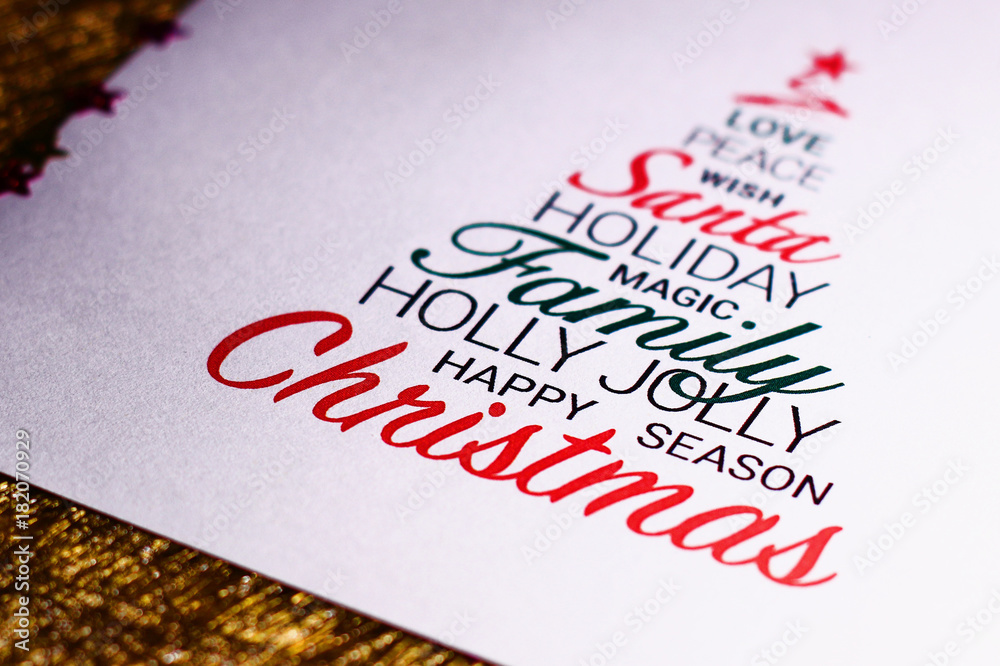 LOVE
PEACE
WISH
Santa
HOLIDAY
MAGIC
Family
HOLLY JOLLY
HAPPY SEASON
Christmas
Adobe Stock | #182070929
Adobe Stock